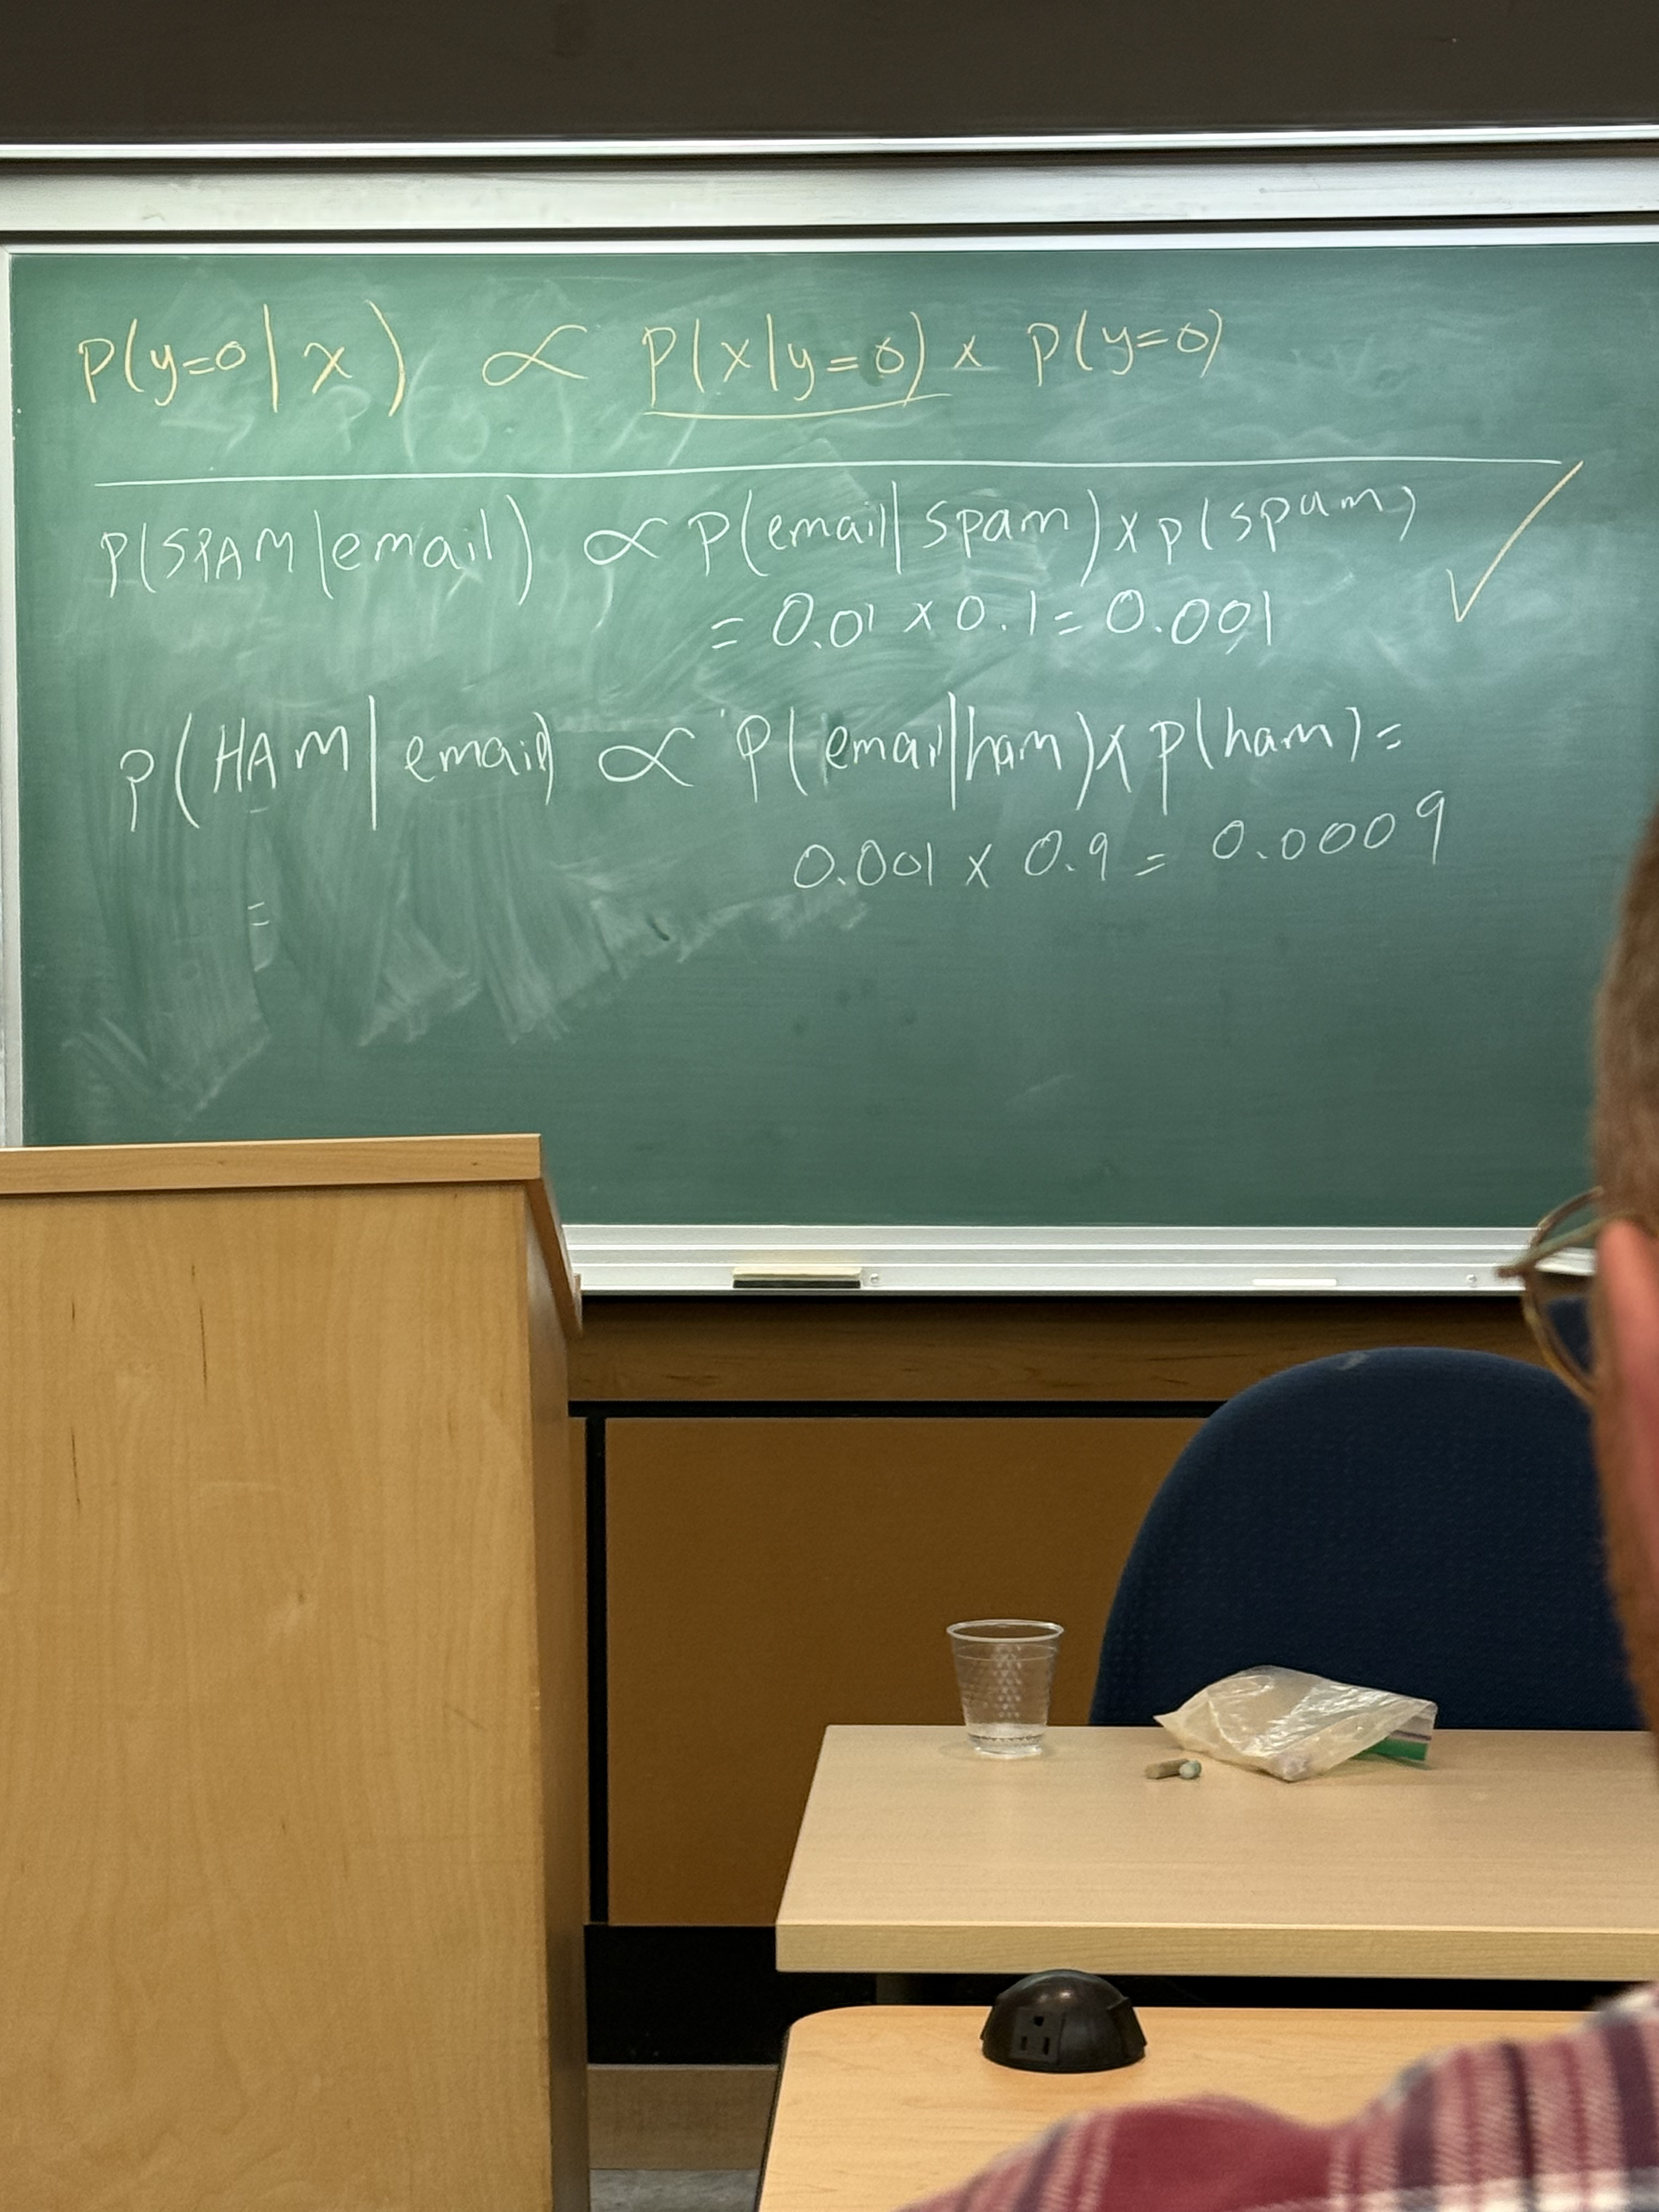 P(y=0|x) ∝ P(x|y=0) x P(y=0)
P(SPAM|email) ∝ P(email|spam) x P(spam)
= 0.01 x 0.1 = 0.001
P(HAM|email) ∝ P(email|ham) x P(ham) =
0.001 x 0.9 = 0.0009
=